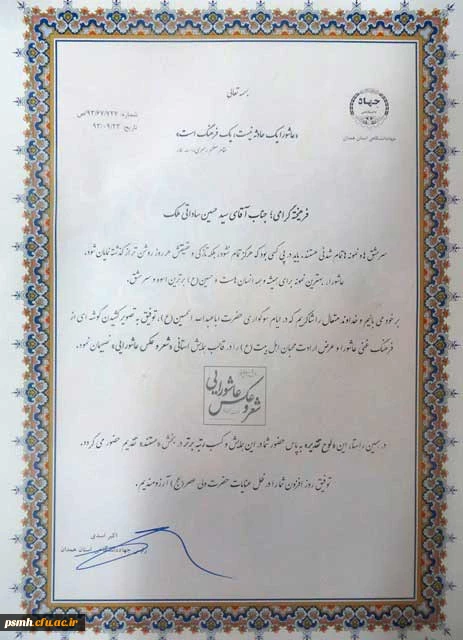 بسمه تعالی
جهاد
دانشگاهی
جهاددانشگاهی استان همدان
شماره: ۹۳/۶۷/۷۲۲/ص
تاریخ: ۹۳/۰۹/۲۳
«عاشورا یک حادثه نیست، یک فرهنگ است»
مقام معظم رهبری
فرهیخته گرامی؛ جناب آقای سید حسین ساداتی ملک
سرمشق ها و نمونه ها تمام شدنی هستند، باید در پی کسی بود که هرگز تمام نشود، بلکه تازگی و حقیقتش هر روز روشن تر از گذشته نمایان شود.
عاشورا، بهترین نمونه برای همیشه و همه انسان هاست و حسین(ع) برترین اسوه و سرمشق.
بر خود می بالیم و خداوند متعال را شاکریم که در ایام سوگواری حضرت اباعبدا... الحسین(ع)، توفیق به تصویر کشیدن گوشه ای از
فرهنگ غنی عاشورا و عرض ارادت محبان اهل بیت(ع) را در قالب همایش استانی «شعر و عکس عاشورایی» نصیبمان نمود.
شعر و عکس عاشورایی
در همین راستا، این «لوح تقدیر» به پاس حضور شما در این همایش و کسب رتبه برتر در بخش «مستند» تقدیم حضور می گردد.
توفیق روز افزون شما را در ظل عنایات حضرت ولی عصر(عج) آرزومندیم.
اکبر اسدی
جهاددانشگاهی استان همدان
psmh.cfu.ac.ir